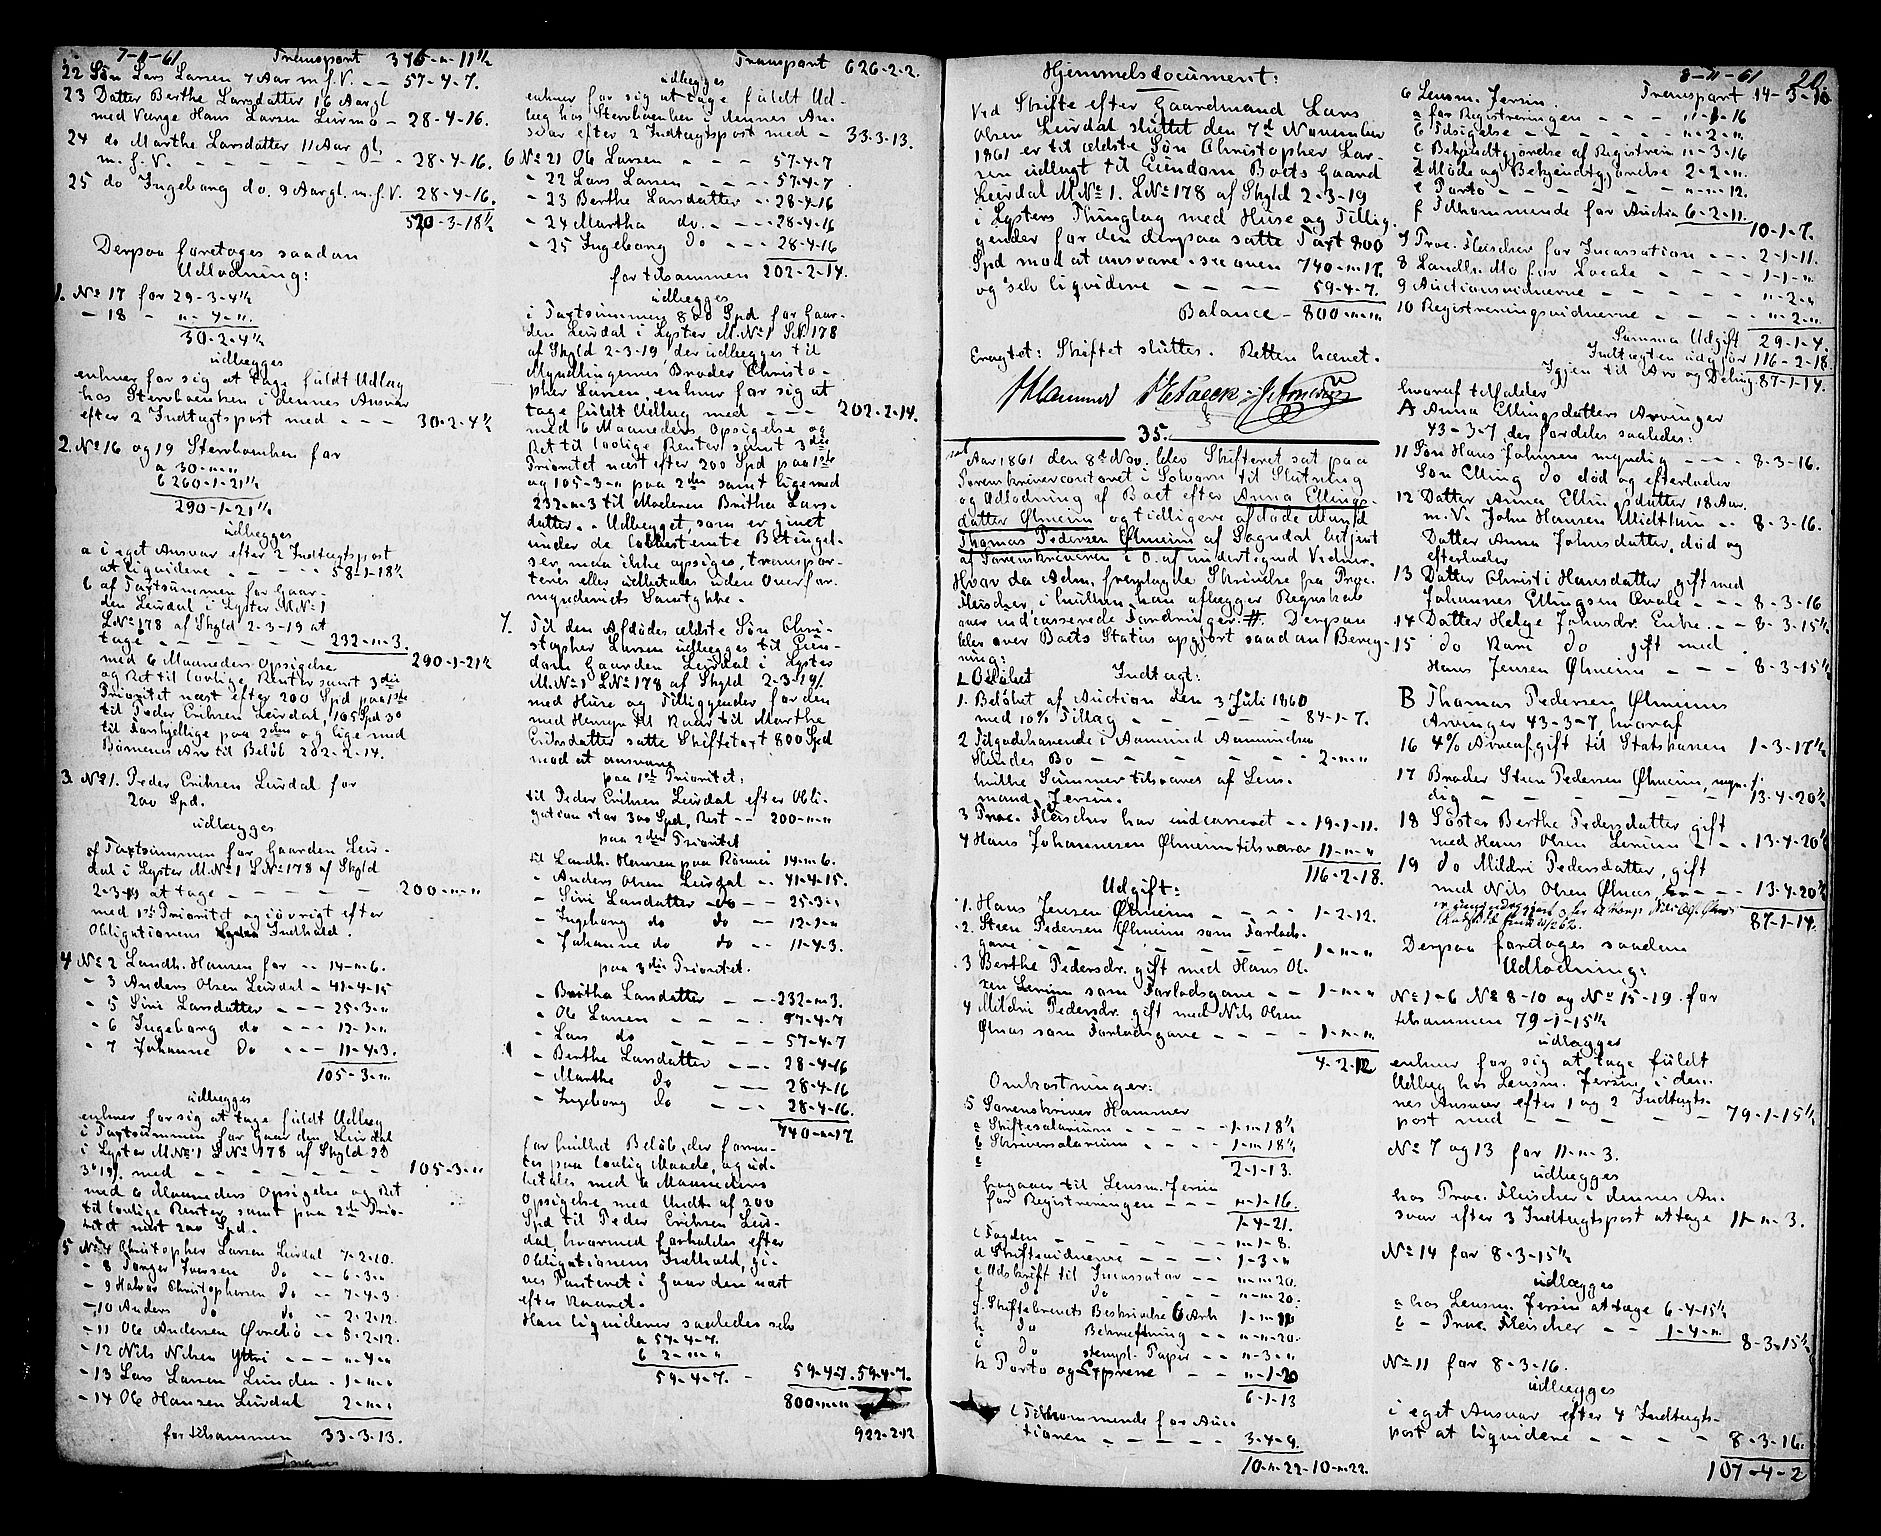 7-11-61 Transport 376-n-11½
22 Søn Lars Larsen 7 Aar m.f.V. - - 57-4-7.
23 Datter Berthe Larsdatter 16 Aar gl
med Værge Hans Larsen Lurmo - 28-4-16.
24 do Marthe Larsdatter 11 Aar gl.
m. f. V. - - - - - - 28-4-16.
25 do Ingeborg do. 9 Aar gl. m.f.V. 28-4-16.
520-3-18½
Derpaa foretages saadan
Udlodning:
1. No 17 for 29-3-4½
- 18 - n-4-n.
30-2-4½
udlægges
enhver for sig at tage fuldt Udlæg
hos Stervboenken i dennes Ansvar
efter 2 Indtægtspost med - - - 30-2-4½
2. No 16 og 19 Stervboenken for
a 30-n-n
b 260-1-21½
290-1-21½
udlægges
a i eget Ansvar efter 2 Indtægtspost
at liquidere - - - - 58-1-18½
b af Taxtsummen for Gaar-
den Leirdal i Lyster M.No 1
L.No 178 af Skyld 2-3-19 at
tage - - - - - 232-n-3.
med 6 Maaneders Opsigelse 290-1-21½
og Ret til lovlige Renter samt 3die
Prioritet næst efter 200 Spd paa 1ste
til Peder Eriksen Leirdal, 105 Spd 3 o
til Forskjellige paa 2den og lige med
Børnenes Arv til Beløb 202-2-14.
3. No 1. Peder Eriksen Leirdal for
200 Spd.
udlægges
af Taxtsummen for Gaarden Leir-
dal i Lyster M.No 1 L.No 178 af Skyld
2-3-19 at tage - - - - - 200-n-n
med 1ste Prioritet og iøvrigt efter
Obligationens Indhold.
4 No 2 Landh. Hansen for - - 14-n-6.
- 3 Anders Olsen Leirdal - 41-4-15
- 5 Siri Larsdatter - - - 25-3-n
- 6 Ingeborg do - - - 12-1-n
- 7 Johanne do - - - 11-4-3.
105-3-n
udlægges
enhver for sig at tage fuldt Udlæg
i Taxtsummen for Gaarden Leirdal
i Lyster M.No 1 L.No 178 af Skyld 2 D
3 o 19 f. med - - - - - - 105-3-n
med 6 Maaneders Opsigelse og Ret
til lovlige Renter samt paa 2den Prio-
ritet næst 200 Spd.
5 No 4 Christopher Larsen Leirdal 7-2-10.
- 8 Torger Iversen do - - 6-3-n
- 9 Halvor Christophersen do - - 7-4-3
- 10 Anders do do - - 2-2-12.
- 11 Ole Andersen Øvrebø - - 5-2-12.
- 12 Nils Nilsen Yttri - - - n-4-n
- 13 Lars Larsen Lunden - 1-n-n
- 14 Ole Hansen Leirdal 2-n-n
for tilsammen 33-3-13.
Trans
Transport 626-2-2.
udlægges
enhver for sig at tage fuldt Ud-
læg hos Stervboenken i dennes An-
svar efter 2 Indtægtspost med - 33-3-13.
6 No 21 Ole Larsen - - - 57-4-7
- 22 Lars Larsen - - - 57-4-7
- 23 Berthe Larsdatter - - 28-4-16
- 24 Martha do. - - - 28-4-16
- 25 Ingeborg do - - - 28-4-16
for tilsammen 202-2-14.
udlægges
i Taxtsummen 800 Spd for Gaar-
den Leirdal i Lyster M.No 1 L.No 178
af Skyld 2-3-19 der udlægges til
Myndlingernes Broder Christo-
pher Larsen, enhver for sig at
tage fuldt Udlæg med - - - 202-2-14.
med 6 Maaneders Opsigelse og
Ret til lovlige Renter samt 3die
Prioritet næst efter 200 Spd paa 1ste
og 105-3-n paa 2den samt lige med
232-n-3 til Moderen Britha Lars-
datter. - Udlægget, som er givet
under de lovbestemte Betingel-
ser, maa ikke opsiges, transpor-
teres eller udbetales uden Overfor-
mynderiets Samtykke.
7. Til den Afdødes ældste Søn Chri-
stopher Larsen udlægges til Eien-
dom Gaarden Leirdal i Lyster
M.No 1 L.No 178 af Skyld 2-3-19.
med Huse og Tilliggender for den
med Hensyn til Kaar til Marthe
Eriksdatter satte Skiftetaxt 800 Spd
mod at ansvare
paa 1ste Prioritet:
til Peder Eriksen Leirdal efter Obli-
gation stor 300 Spd, Rest - - 200-n-n
paa 2den Prioritet
til Landh. Hansen paa Rønnei 14-n-6.
- Anders Olsen Leirdal - - 41-4-15.
- Siri Larsdatter do - - 25-3-n
- Ingeborg do do - - 12-1-n
- Johanne do do - - 11-4-3.
paa 3die Prioritet.
- Britha Larsdatter - - - 232-n-3.
- Ole Larsen - - - - 57-4-7
- Lars do - - - - 57-4-7
- Berthe Larsdatter - - - 28-4-16
- Marthe do - - - 28-4-16
- Ingeborg do - - - 28-4-16.
740-n-17
for hvilket Beløb, der forren-
tes paa lovlig Maade, og ud-
betales med 6 Maaneders
Opsigelse med Undt. af 200
Spd til Peder Eriksen Leir-
dal hvormed forholdes efter
Obligationens Indhold, gi-
ves Panteret i Gaarden næst
efter Kaaret.
Han liquiderer saaledes selv
a 57-4-7.
b 2-n-n
59-4-7. - 59-4-7. 59-4-7.
800-n-n
922-2-12
Hjemmelsdocument:
Ved Skifte efter Gaardmand Lars
Olsen Leirdal sluttet den 7de November
1861 er til ældste Søn Christopher Lar-
sen udlagt til Eiendom Boets Gaard
Leirdal M.No 1. L.No 178 af Skyld 2-3-19
i Lysters Thinglag med Huse og Tillig-
gender for den derpaa satte Taxt 800
Spd mod at ansvare - see oven 740-n-17.
og selv liquidere - - - - 59-4-7.
Balance - 800-n-n
Eragtet: Skiftet sluttes. Retten hævet.
Hammer
35.
Aar 1861 den 8de Nov. blev Skifteret sat paa
Sorenskrivercontoret i Solvorn til Slutning
og Udlodning af Boet efter Anna Ellings-
datter Ølmeim og tidligere afdøde Mand
Thomas Pedersen Ølmeim af Sogndal betjent
af Sorenskriveren i O. af undertegnede Vidner.
Hvor da Adm. fremlagde Skrivelse fra Proc.
Fleischer, i hvilken han aflægger Regnskab
over indcasserede Fordringer. #. Derpaa
blev over Boets Status opgjort saadan Bereg-
ning:
Indtægt:
1. Beløbet af Auction den 3 Juli 1860
med 10% Tillæg - - - - - 84-1-7.
2 Tilgodehavende i Aamund Aamundsen
Bo - - - - - - 2-n-n
hvilke Summer tilsvares af Lens-
mand Jersin.
3 Proc. Fleischer har indcasseret - - 19-1-11.
4 Hans Johannesen Ølmeim tilsvarer 11-n-n
116-2-18.
Udgift:
1. Hans Jensen Ølmeim - - - - 1-2-12.
2. Steen Pedersen Ølmeim som Forlods-
gave - - - - - - - 1-n-n
3 Berthe Pedersdr. gift med Hans Ol-
sen Lereim som Forlodsgave - - 1-n-n
4 Mildri Pedersdr. gift med Nils Olsen
Ølnæs som Forlodsgave - - - 1-n-n
4-2-12
Omkostninger:
5 Sorenskriver Hammer
a Skiftesalarium - - - - - 1-n-18½
b Skriversalarium - - - - 1-n-18½
2-1-13.
hvoraf til Lensm. Jersin
for Registreringen - - - n-1-16.
1-4-21.
c Fogden - - - - - n-1-8.
d Skiftevidnerne - - - 1-3-n
e Udskrift til Incassator - - n-n-20.
f do do - - n-n-20.
g Skiftebrevets Beskrivelse 6 Ark 1-n-
h do Bekræftning - - n-n-20.
i do stempl. Papir - - n-3-n
k Porto og Exprene - - n-1-20
6-1-13
l Tilkommende for Auc-
tionen - - - - - 3-4-9.
10-n-22-10-n-22.
8-11-61 20.
Transport 14-3-10
6 Lensm. Jersin.
a for Registreringen - - - n-1-16
b Tilsigelse - - - - - n-2-n.
c Bekjendtgjørelse af Registrein n-3-16
d Møde og Bekjendtgjørelse 2-2-n.
e Porto - - - - - - n-n-12.
f Tilkommende for Auctia 6-2-11.
10-1-7.
7 Proc. Fleischer for Incassation - - - 2-1-11.
8 Landh. Mo for Locale - - - - 1-1-n
9 Auctionsvidnerne - - - - - n-2-n
10 Registreringsvidnerne - - - - n-2-n.
Summa Udgift 29-1-4.
Indtægten udgjør 116-2-18
Igjen til Arv og Deling 87-1-14.
hvoraf tilfalder
A Anna Ellingsdatters Arvinger
43-3-7 der fordeles saaledes:
11 Søn Hans Johnsen myndig - - - 8-3-16.
Søn Elling do død og efterlader
12 Datter Anna Ellingsdatter 18 Aar.
m. V. John Hansen Midthun - - 8-3-16.
Datter Anna Johnsdatter, død og
efterlader
13 Datter Christi Hansdatter gift med
Johannes Ellingsen Qvale - - - 8-3-16
14 Datter Helge Johnsdr. Enke. - - 8-3-15½
15 do Kari do gift med
Hans Jensen Ølmeim - - - 8-3-15½
B Thomas Pedersen Ølmeims
Arvinger 43-3-7 hvoraf
16 4% Arveafgift til Statskassen 1-3-17½
17 Broder Steen Pedersen Ølmeim, myn-
dig - - - - - - - 13-4-20½
18 Søster Berthe Pedersdatter gift
med Hans Olsen Lereim - - 13-4-20½
19 do Mildri Pedersdatter, gift
med Nils Olsen Ølnæs - - - - 13-4-20½
87-1-14.
Derpaa foretages saadan
Udlodning:
No 1-6 No 8-10 og No 15-19 for
tilsammen 79-1-15½
udlægges
enhver for sig at tage fuldt
Udlæg hos Lensm. Jersin i den-
nes Ansvar efter 1 og 2 Indtægts-
post med - - - - - 79-1-15½
No 7 og 13 for 11-n-3.
udlægges
hos Proc. Fleischer i dennes An-
svar efter 3 Indtægtspost at tage 11-n-3.
No 14 for 8-3-15½
udlægges
a hos Lensm. Jersin at tage 6-4-15½
b - Proc. Fleischer - - 1-4-n.
8-3-15½
No 11 for 8-3-16.
udlægges
i eget Ansvar efter 4 Indtægts-
post at liquidere - - - - 8-3-16.
107-4-2